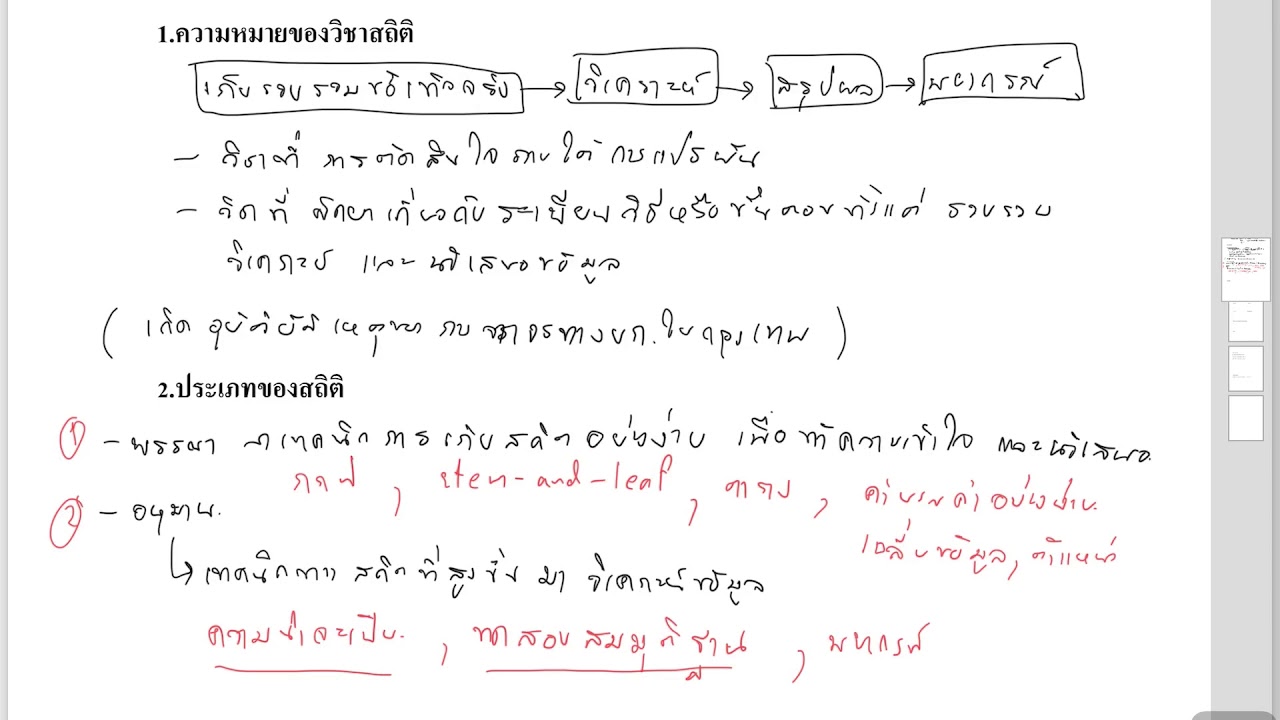 1.ความหมายของวิชาสถิติ
เก็บรวบรวมข้อเท็จจริง → วิเคราะห์ → สรุปผล → พยากรณ์
- วิชาที่ การตัดสินใจภายใต้ การแปรผัน
- วิชาที่ ศึกษาเกี่ยวกับระเบียบวิธีหรือขั้นตอนตั้งแต่ รวบรวม
วิเคราะห์ และนำเสนอข้อมูล
( เกิดอุบัติ
2.ประเภทของสถิติ
① - พรรณนา เทคนิคการเก็บสถิติอย่างง่าย เพื่อทำความเข้าใจ และนำเสนอ
กราฟ , stem-and-leaf , ตาราง , คำนวณค่าอย่างง่าย
② - อนุมาน.
เฉลี่ยข้อมูล, ตำแหน่ง
↳ เทคนิคทาง สถิติที่สูงขึ้น มา วิเคราะห์ข้อมูล
ความน่าจะเป็น , ทดสอบสมมุติฐาน , พยากรณ์